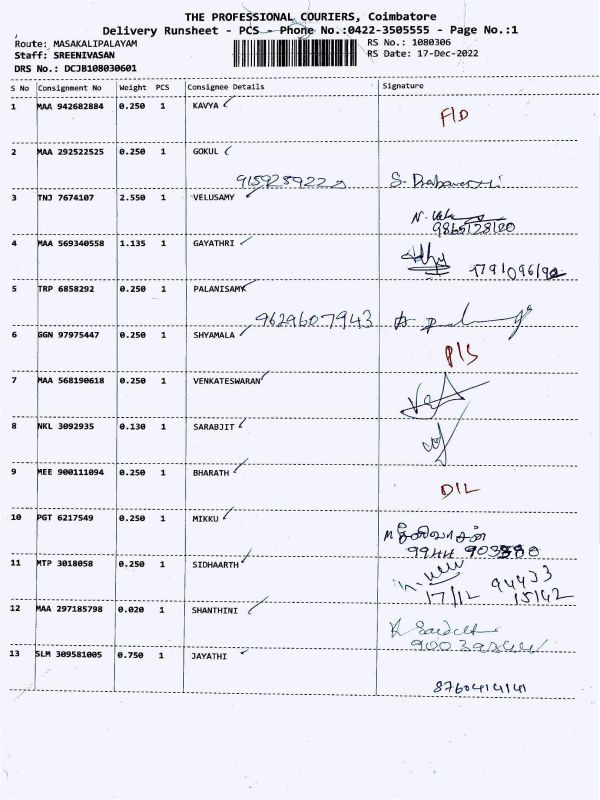 THE PROFESSIONAL COURIERS, Coimbatore
Delivery Runsheet - PCS - Phone No.:0422-3505555 - Page No.:1
Route: MASAKALIPALAYAM
RS No.: 1080306
Staff: SREENIVASAN
RS Date: 17-Dec-2022
DRS No.: DCJB108030601
S No Consignment No Weight PCS Consignee Details Signature
1 MAA 942682884 0.250 1 KAVYA
F/D
2 MAA 292522525 0.250 1 GOKUL
9159289220
3 TNJ 7674107 2.550 1 VELUSAMY
9865128120
4 MAA 569340558 1.135 1 GAYATHRI
5 TRP 6858292 0.250 1 PALANISAMY
9629607943
6 GGN 97975447 0.250 1 SHYAMALA
P/S
7 MAA 568190618 0.250 1 VENKATESWARAN
8 NKL 3092935 0.130 1 SARABJIT
9 MEE 900111094 0.250 1 BHARATH
D/L
10 PGT 6217549 0.250 1 MIKKU
11 MTP 3018058 0.250 1 SIDHAARTH
94433
17/12 15142
12 MAA 297185798 0.020 1 SHANTHINI
13 SLM 309581005 0.750 1 JAYATHI
8760414141